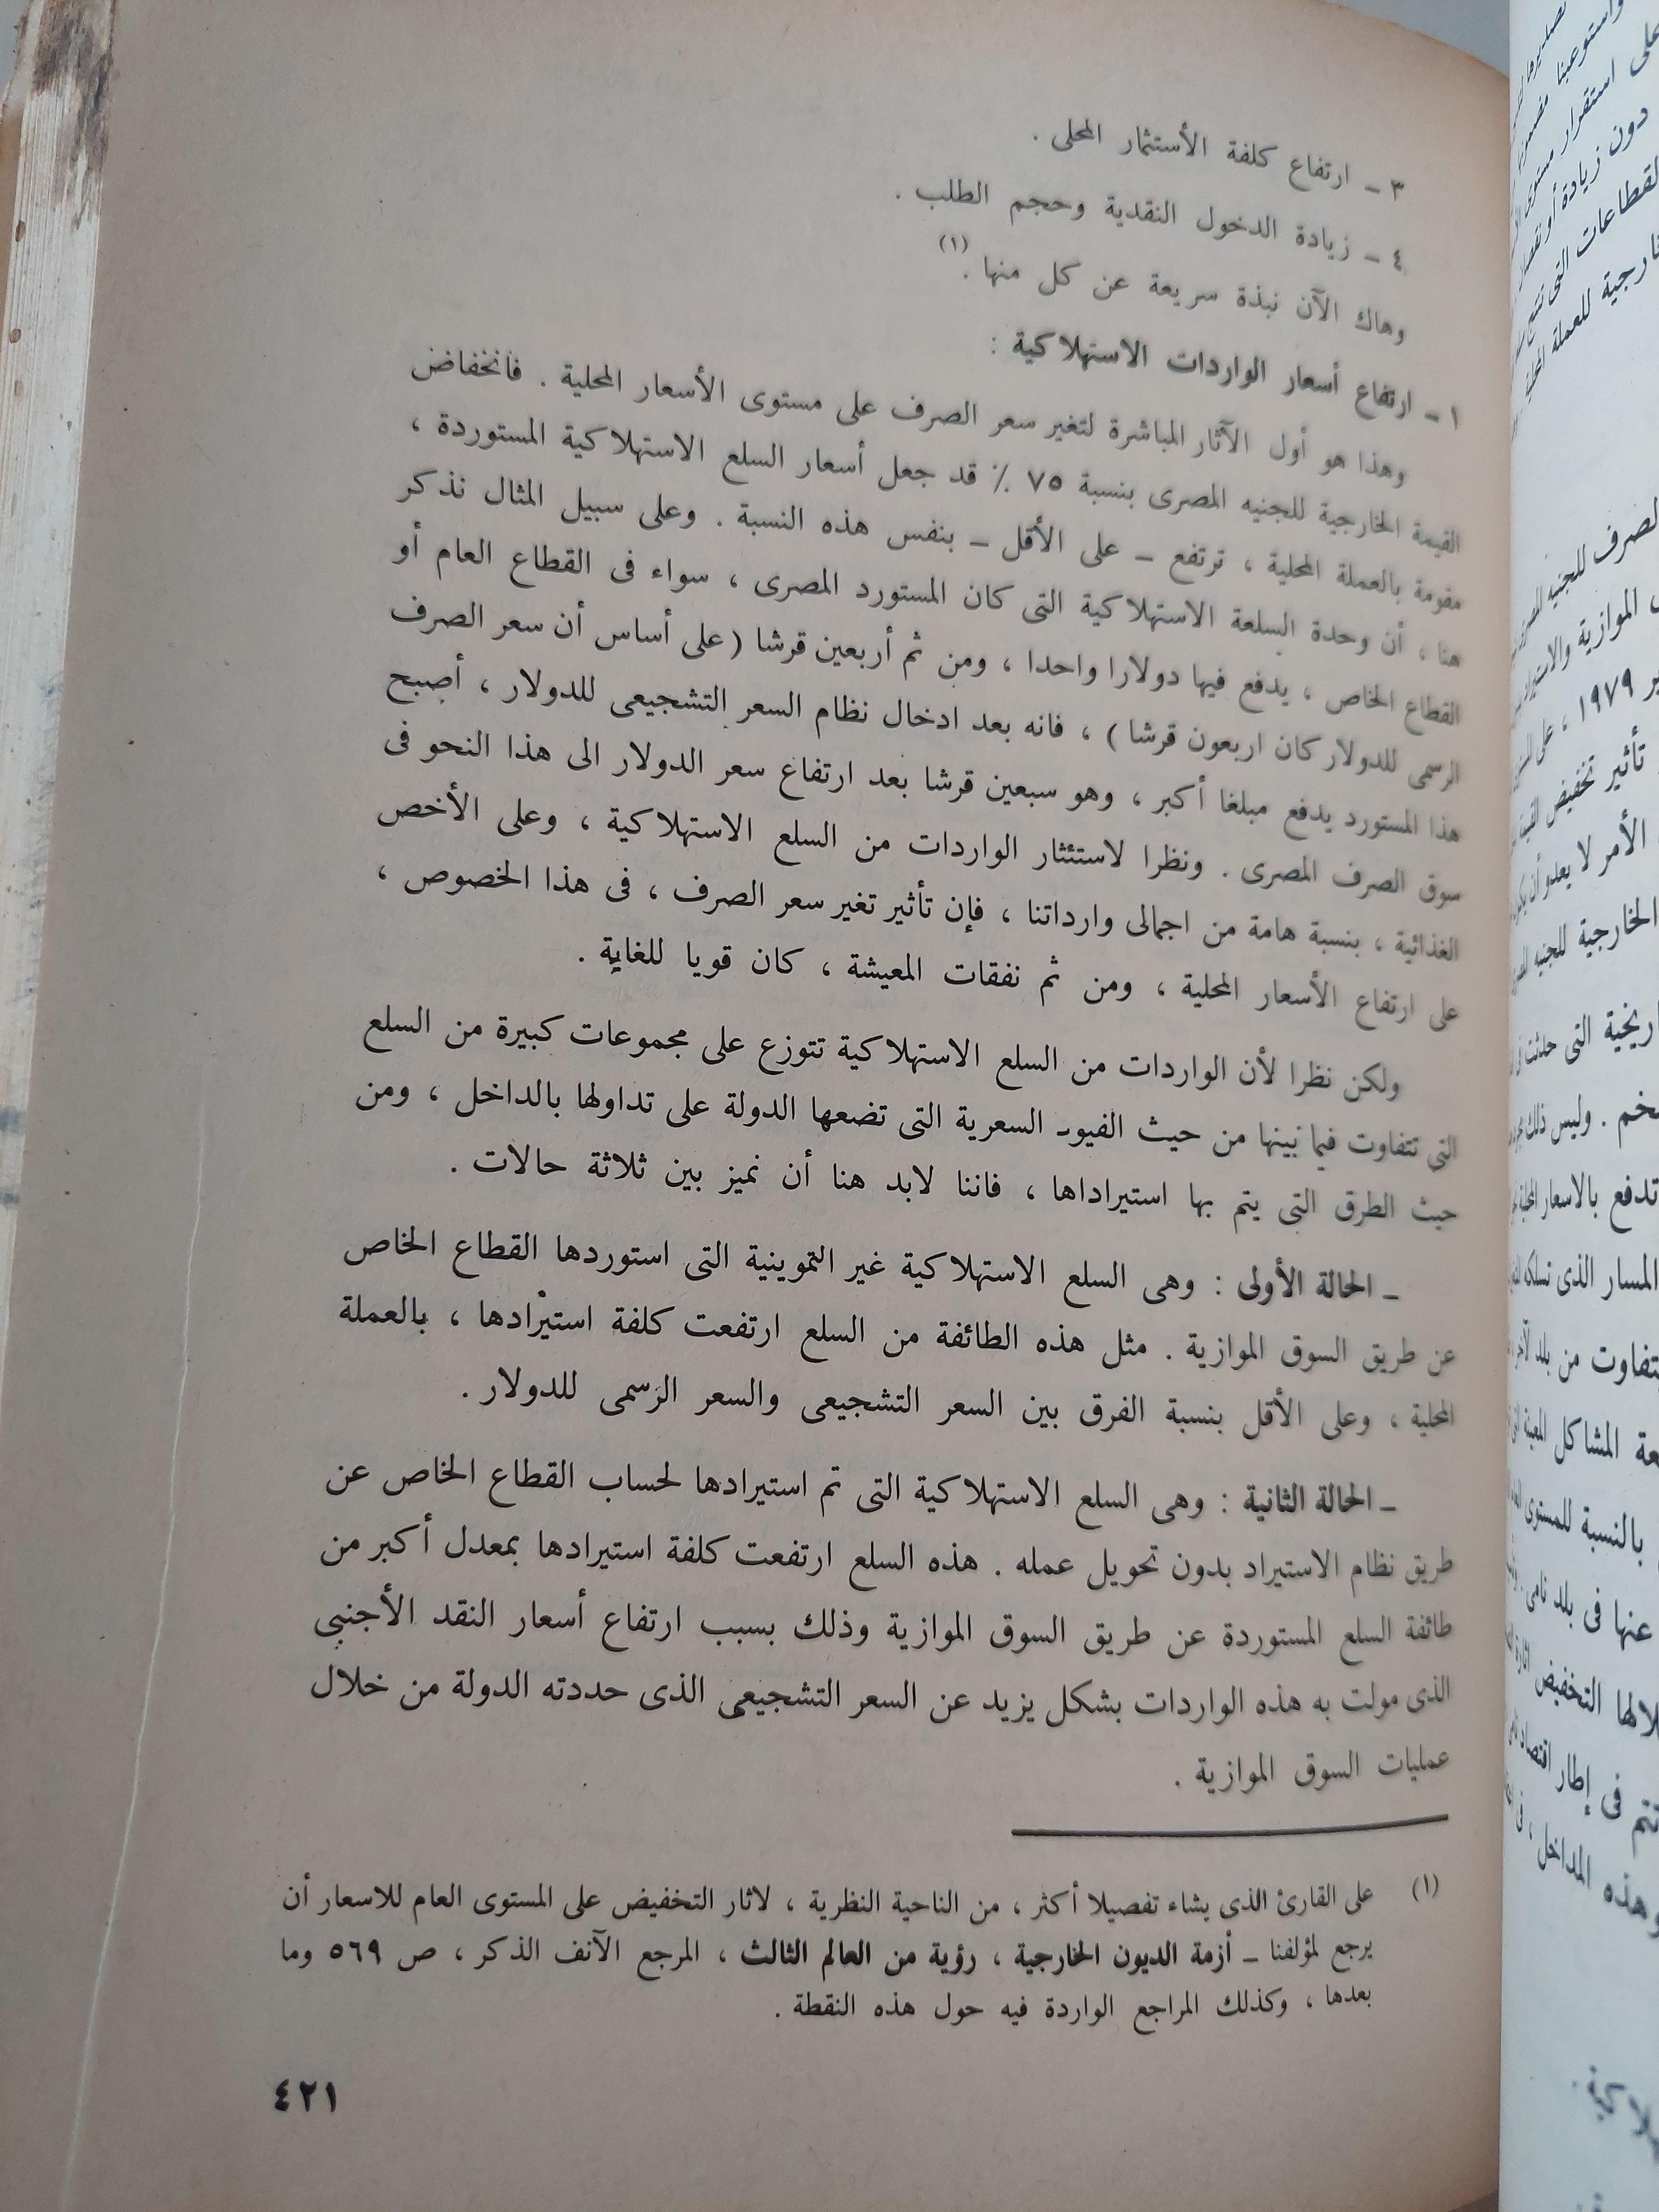 ٣ – ارتفاع كلفة الأستثمار المحلى .
٤ – زيادة الدخول النقدية وحجم الطلب .
وهاك الآن نبذة سريعة عن كل منها .(١)
١ – ارتفاع أسعار الواردات الاستهلاكية :
وهذا هو أول الآثار المباشرة لتغير سعر الصرف على مستوى الأسعار المحلية . فانخفاض
القيمة الخارجية للجنيه المصرى بنسبة ٧٥ ٪ قد جعل أسعار السلع الاستهلاكية المستوردة ،
مقومة بالعملة المحلية ، ترتفع – على الأقل – بنفس هذه النسبة . وعلى سبيل المثال نذكر
هنا ، أن وحدة السلعة الاستهلاكية التى كان المستورد المصرى ، سواء فى القطاع العام أو
القطاع الخاص ، يدفع فيها دولارا واحدا ، ومن ثم أربعين قرشا ( على أساس أن سعر الصرف
الرسمى للدولار كان اربعون قرشا ) ، فانه بعد ادخال نظام السعر التشجيعى للدولار ، أصبح
هذا المستورد يدفع مبلغا أكبر ، وهو سبعين قرشا بعد ارتفاع سعر الدولار الى هذا النحو فى
سوق الصرف المصرى . ونظرا لاستئثار الواردات من السلع الاستهلاكية ، وعلى الأخص
الغذائية ، بنسبة هامة من اجمالى وارداتنا ، فإن تأثير تغير سعر الصرف ، فى هذا الخصوص ،
على ارتفاع الأسعار المحلية ، ومن ثم نفقات المعيشة ، كان قويا للغاية .
ولكن نظرا لأن الواردات من السلع الاستهلاكية تتوزع على مجموعات كبيرة من السلع
التي تتفاوت فيما بينها من حيث القيود السعرية التى تضعها الدولة على تداولها بالداخل ، ومن
حيث الطرق التى يتم بها استيراداها ، فاننا لابد هنا أن نميز بين ثلاثة حالات .
– الحالة الأولى : وهى السلع الاستهلاكية غير التموينية التى استوردها القطاع الخاص
عن طريق السوق الموازية . مثل هذه الطائفة من السلع ارتفعت كلفة استيرادها ، بالعملة
المحلية ، وعلى الأقل بنسبة الفرق بين السعر التشجيعى والسعر الرسمى للدولار .
– الحالة الثانية : وهى السلع الاستهلاكية التى تم استيرادها لحساب القطاع الخاص عن
طريق نظام الاستيراد بدون تحويل عمله . هذه السلع ارتفعت كلفة استيرادها بمعدل أكبر من
طائفة السلع المستوردة عن طريق السوق الموازية وذلك بسبب ارتفاع أسعار النقد الأجنبى
الذى مولت به هذه الواردات بشكل يزيد عن السعر التشجيعى الذى حددته الدولة من خلال
عمليات السوق الموازية .
(١) على القارئ الذى يشاء تفصيلا أكثر ، من الناحية النظرية ، لاثار التخفيض على المستوى العام للاسعار أن
يرجع لمؤلفنا – أزمة الديون الخارجية ، رؤية من العالم الثالث ، المرجع الآنف الذكر ، ص ٥٦٩ وما
بعدها ، وكذلك المراجع الواردة فيه حول هذه النقطة .
٤٢١